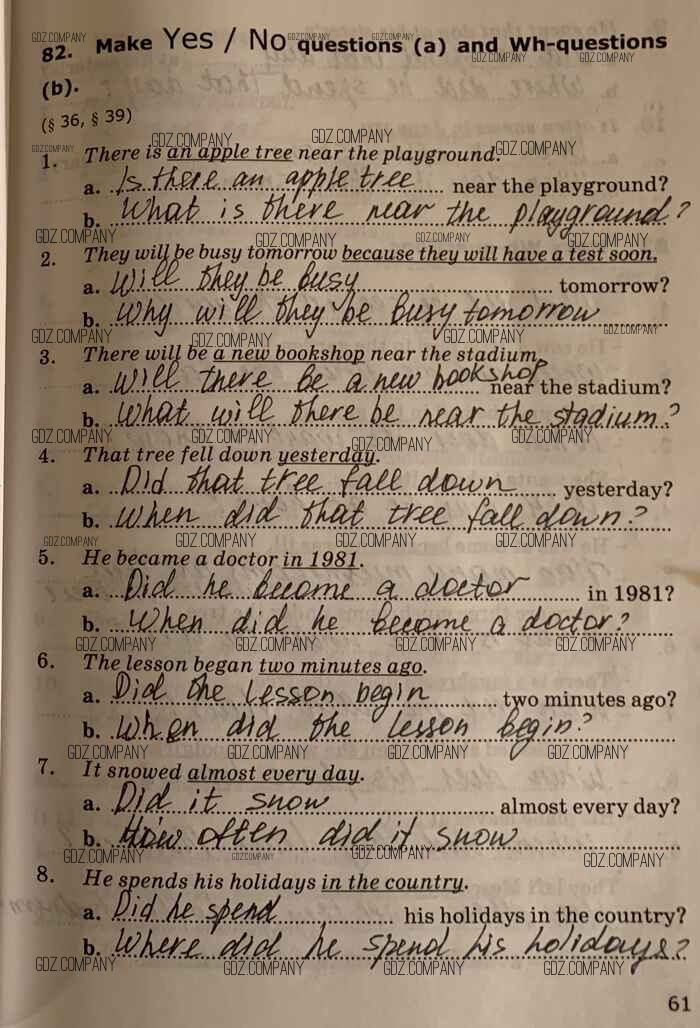 82. Make Yes / No questions (a) and Wh-questions
(b).
(§ 36, § 39)
1. There is an apple tree near the playground.
a. Is there an apple tree near the playground?
b. What is there near the playground?
2. They will be busy tomorrow because they will have a test soon.
a. Will they be busy tomorrow?
b. Why will they be busy tomorrow
3. There will be a new bookshop near the stadium.
a. Will there be a new bookshop near the stadium?
b. What will there be near the stadium?
4. That tree fell down yesterday.
a. Did that tree fall down yesterday?
b. When did that tree fall down?
5. He became a doctor in 1981.
a. Did he become a doctor in 1981?
b. When did he become a doctor?
6. The lesson began two minutes ago.
a. Did the lesson begin two minutes ago?
b. When did the lesson begin?
7. It snowed almost every day.
a. Did it snow almost every day?
b. How often did it snow
8. He spends his holidays in the country.
a. Did he spend his holidays in the country?
b. Where did he spend his holidays?
61
GDZ.COMPANY